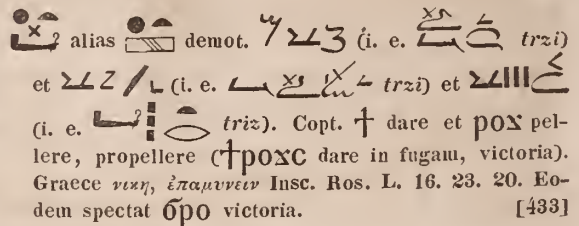 alias demot. (i. e. trzi)
et (i. e. trzi) et
(i. e. triz). Copt. ϯ dare et ⲣⲟϫ pel-
lere, propellere (ϯⲣⲟϫⲥ dare in fugam, victoria).
Graece νικη, ἐπαμυνειν Insc. Ros. L. 16. 23. 20. Eo-
dem spectat ϭⲣⲟ victoria. [433]